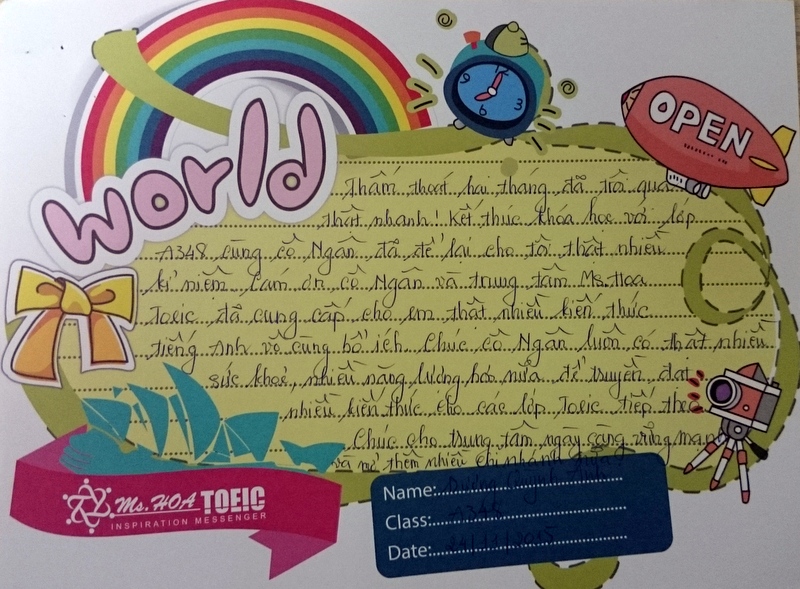 world
OPEN
Thấm thoát hai tháng đã trôi qua
thật nhanh! Kết thúc khóa học với lớp
A348 cùng cô Ngân đã để lại cho tôi thật nhiều
kỉ niệm. Cảm ơn cô Ngân và trung tâm Ms. Hoa
Toeic đã cung cấp cho em thật nhiều kiến thức
tiếng Anh vô cùng bổ ích. Chúc cô Ngân luôn có thật nhiều
sức khoẻ, nhiều năng lượng hơn nữa để truyền đạt
nhiều kiến thức cho các lớp Toeic tiếp theo
Chúc cho trung tâm ngày càng vững mạnh
và mở thêm nhiều chi nhánh
Ms. HOA TOEIC
INSPIRATION MESSENGER
Name: Dương
Class: A348
Date: